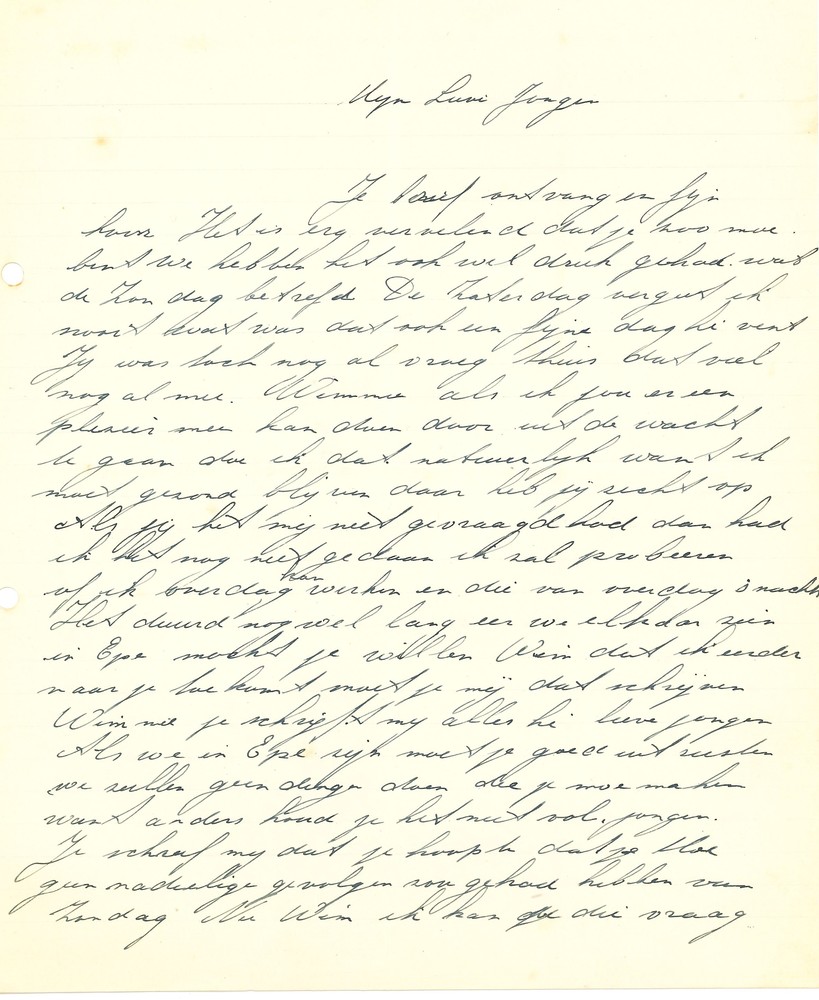 Myn Lieve Jongen
Je brief ontvangen fijn
hoor Het is erg vervelend dat je zoo moe.
bent we hebben het ook wel druk gehad. wat
de Zondag betrefd De Zaterdag verget ik
nooit want was dat ook een fijne dag hè vent
Jy was toch nog al vroeg thuis dat viel
nog al mee. Wimmie als ik jou er een
plezier mee kan doen door uit de wacht
te gaan doe ik dat natuurlyk want ik
moet gezond blijven daar heb jij recht op
Als jij het mij niet gevraagd had dan had
ik het nog niet gedaan ik zal probeeren
of ik overdag kan werken en die van overdag s nachts
Het duurd nog wel lang eer we elkdar zien
in Epe mocht je willen Wim dat ik eerder
naar je toe komt moet je mij dat schrijven
Wimmie je schrijft my alles hè lieve jongen
Als we in Epe zijn moet je goed uit rusten
we zullen geen dingen doen die je moe maken
want anders houd je het niet vol. jongen.
Je schreef my dat je hoopte dat je
geen nadeelige gevolgen zou gehad hebben van
Zondag Nee Wim ik kan die vraag